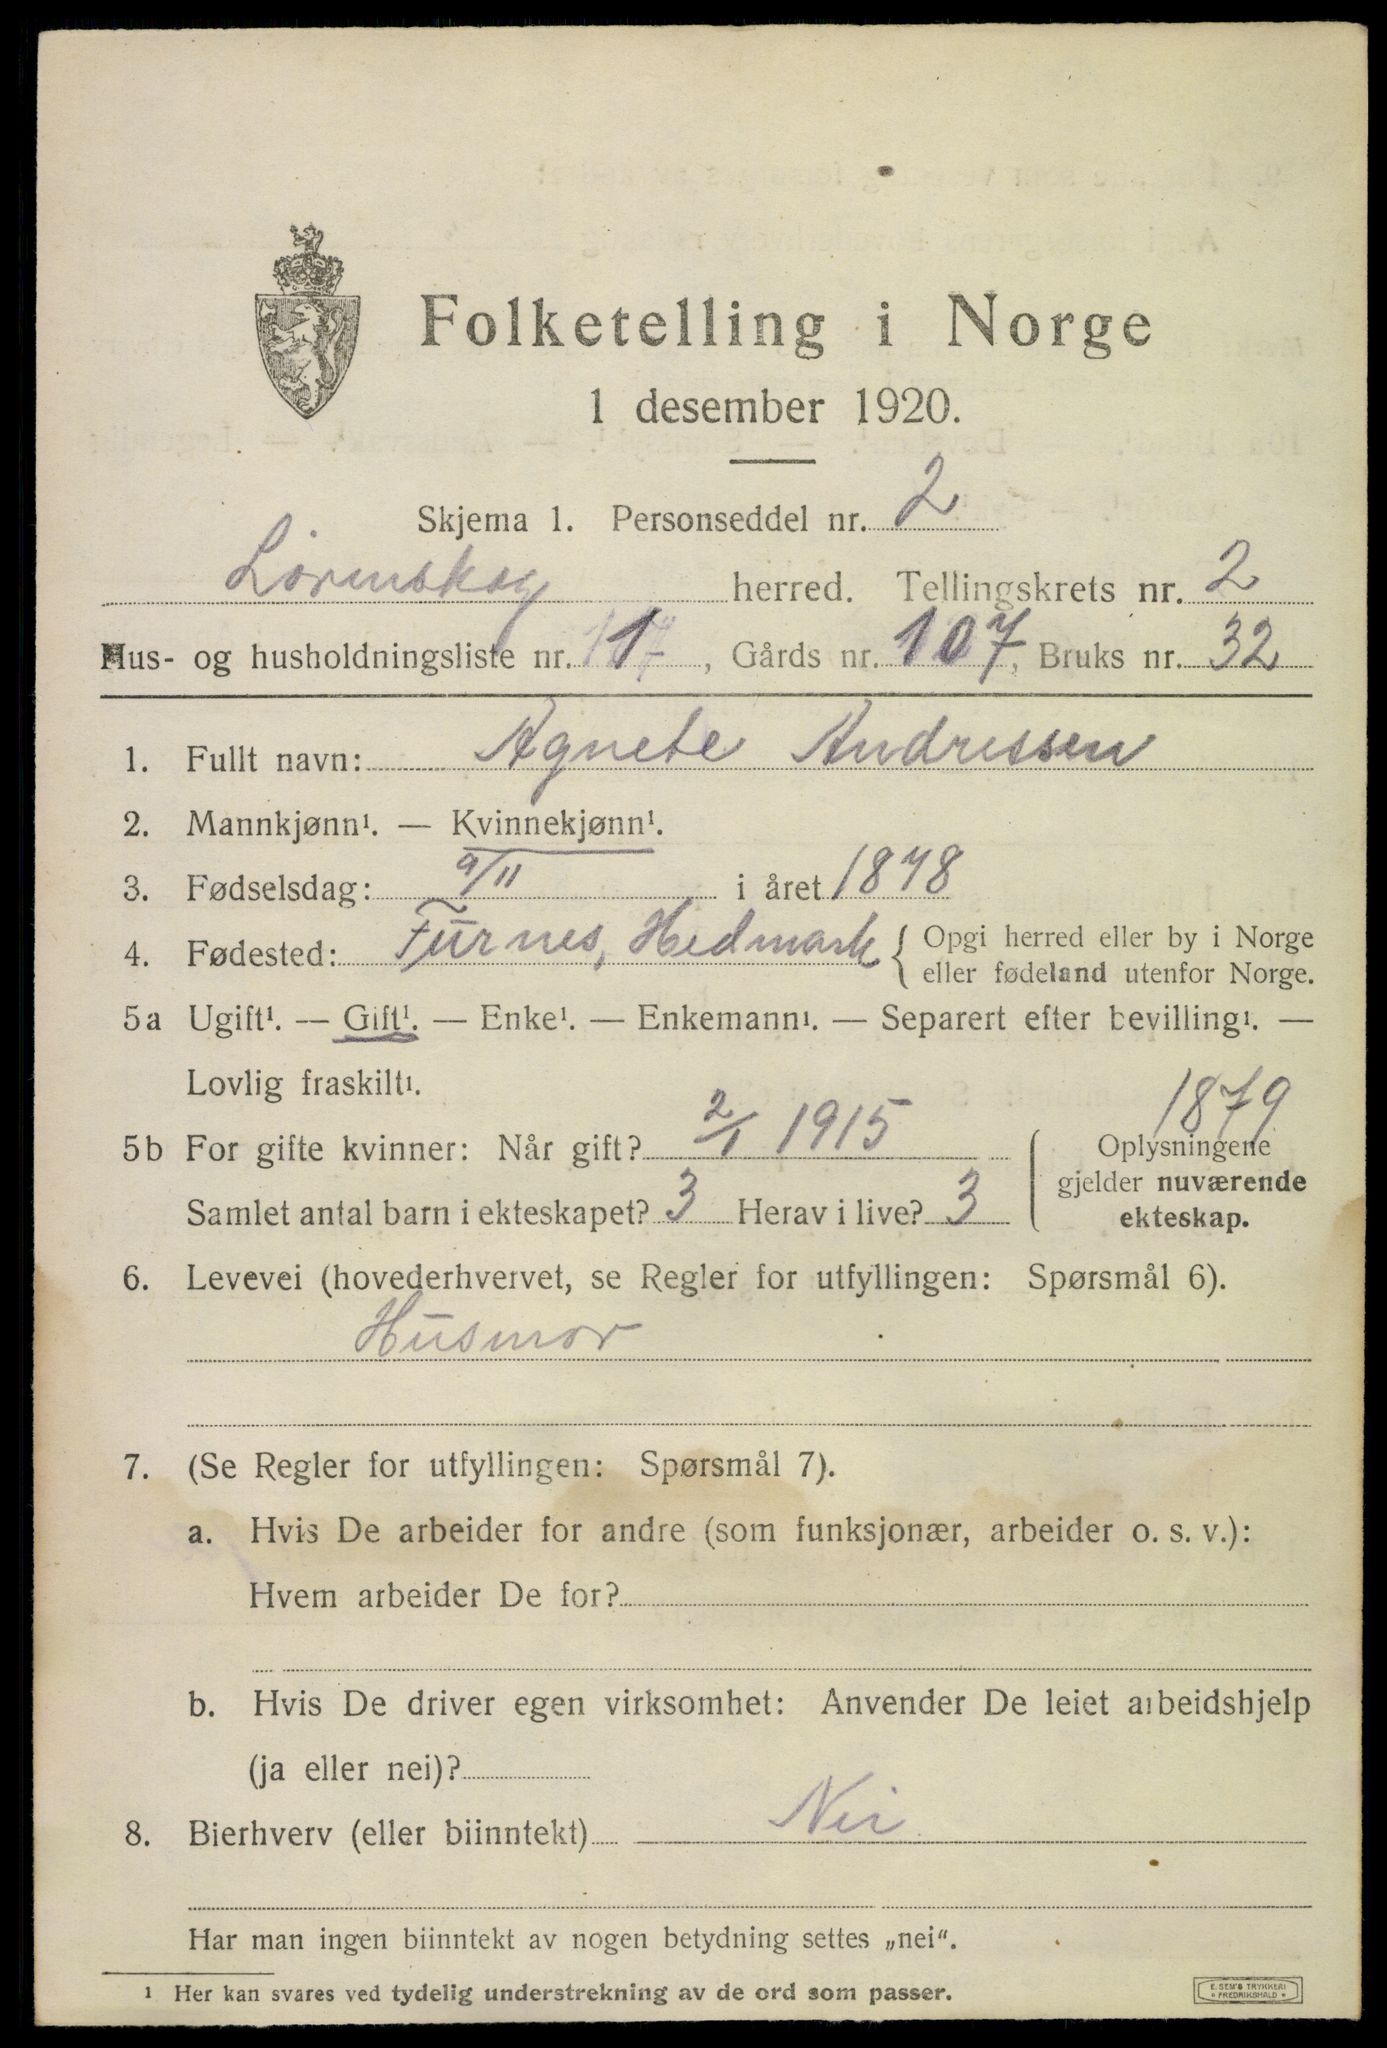 Folketelling i Norge
1 desember 1920.
Skjema 1. Personseddel nr. 2
Lørenskog herred. Tellingskrets nr. 2
Hus- og husholdningsliste nr. 1, Gårds nr. 107, Bruks nr. 32
1. Fullt navn: Agnete Andressen
2. Mannkjønn¹. — Kvinnekjønn¹.
3. Fødselsdag: 9/11 i året 1878
4. Fødested: Furnes, Hedmark { Opgi herred eller by i Norge
eller fødeland utenfor Norge.
5a Ugift¹. — Gift¹. — Enke¹. — Enkemann¹. — Separert efter bevilling¹. —
Lovlig fraskilt¹.
1879
5b For gifte kvinner: Når gift? 2/1 1915
Samlet antal barn i ekteskapet? 3 Herav i live? 3
Oplysningene
gjelder nuværende
ekteskap.
6. Levevei (hovederhvervet, se Regler for utfyllingen: Spørsmål 6).
Husmor
7. (Se Regler for utfyllingen: Spørsmål 7).
a. Hvis De arbeider for andre (som funksjonær, arbeider o. s. v.):
Hvem arbeider De for?
b. Hvis De driver egen virksomhet: Anvender De leiet arbeidshjelp
(ja eller nei)?
8. Bierhverv (eller biinntekt) Nei
Har man ingen biinntekt av nogen betydning settes „nei“.
¹ Her kan svares ved tydelig understrekning av de ord som passer.
E. SEM'S TRYKKERI
FREDRIKSHALD